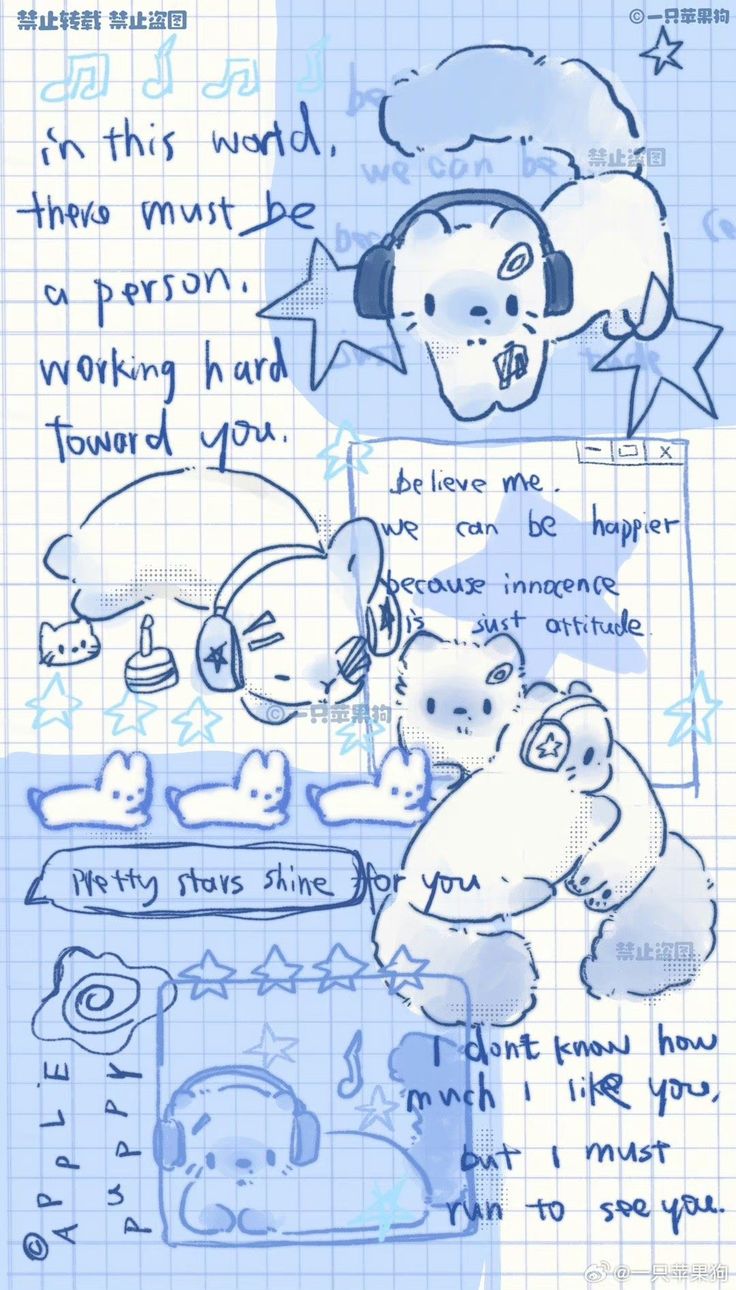 禁止转载 禁止盗图
©一只苹果狗
in this world,
there must be
a person,
working hard
toward you.
be
we can be
禁止盗图
believe me.
we can be happier
because innocence
is just attitude.
©一只苹果狗
Pretty stars shine for you
禁止盗图
I don't know how
much I like you,
but I must
run to see you.
©APPLE
PUPPY
@一只苹果狗